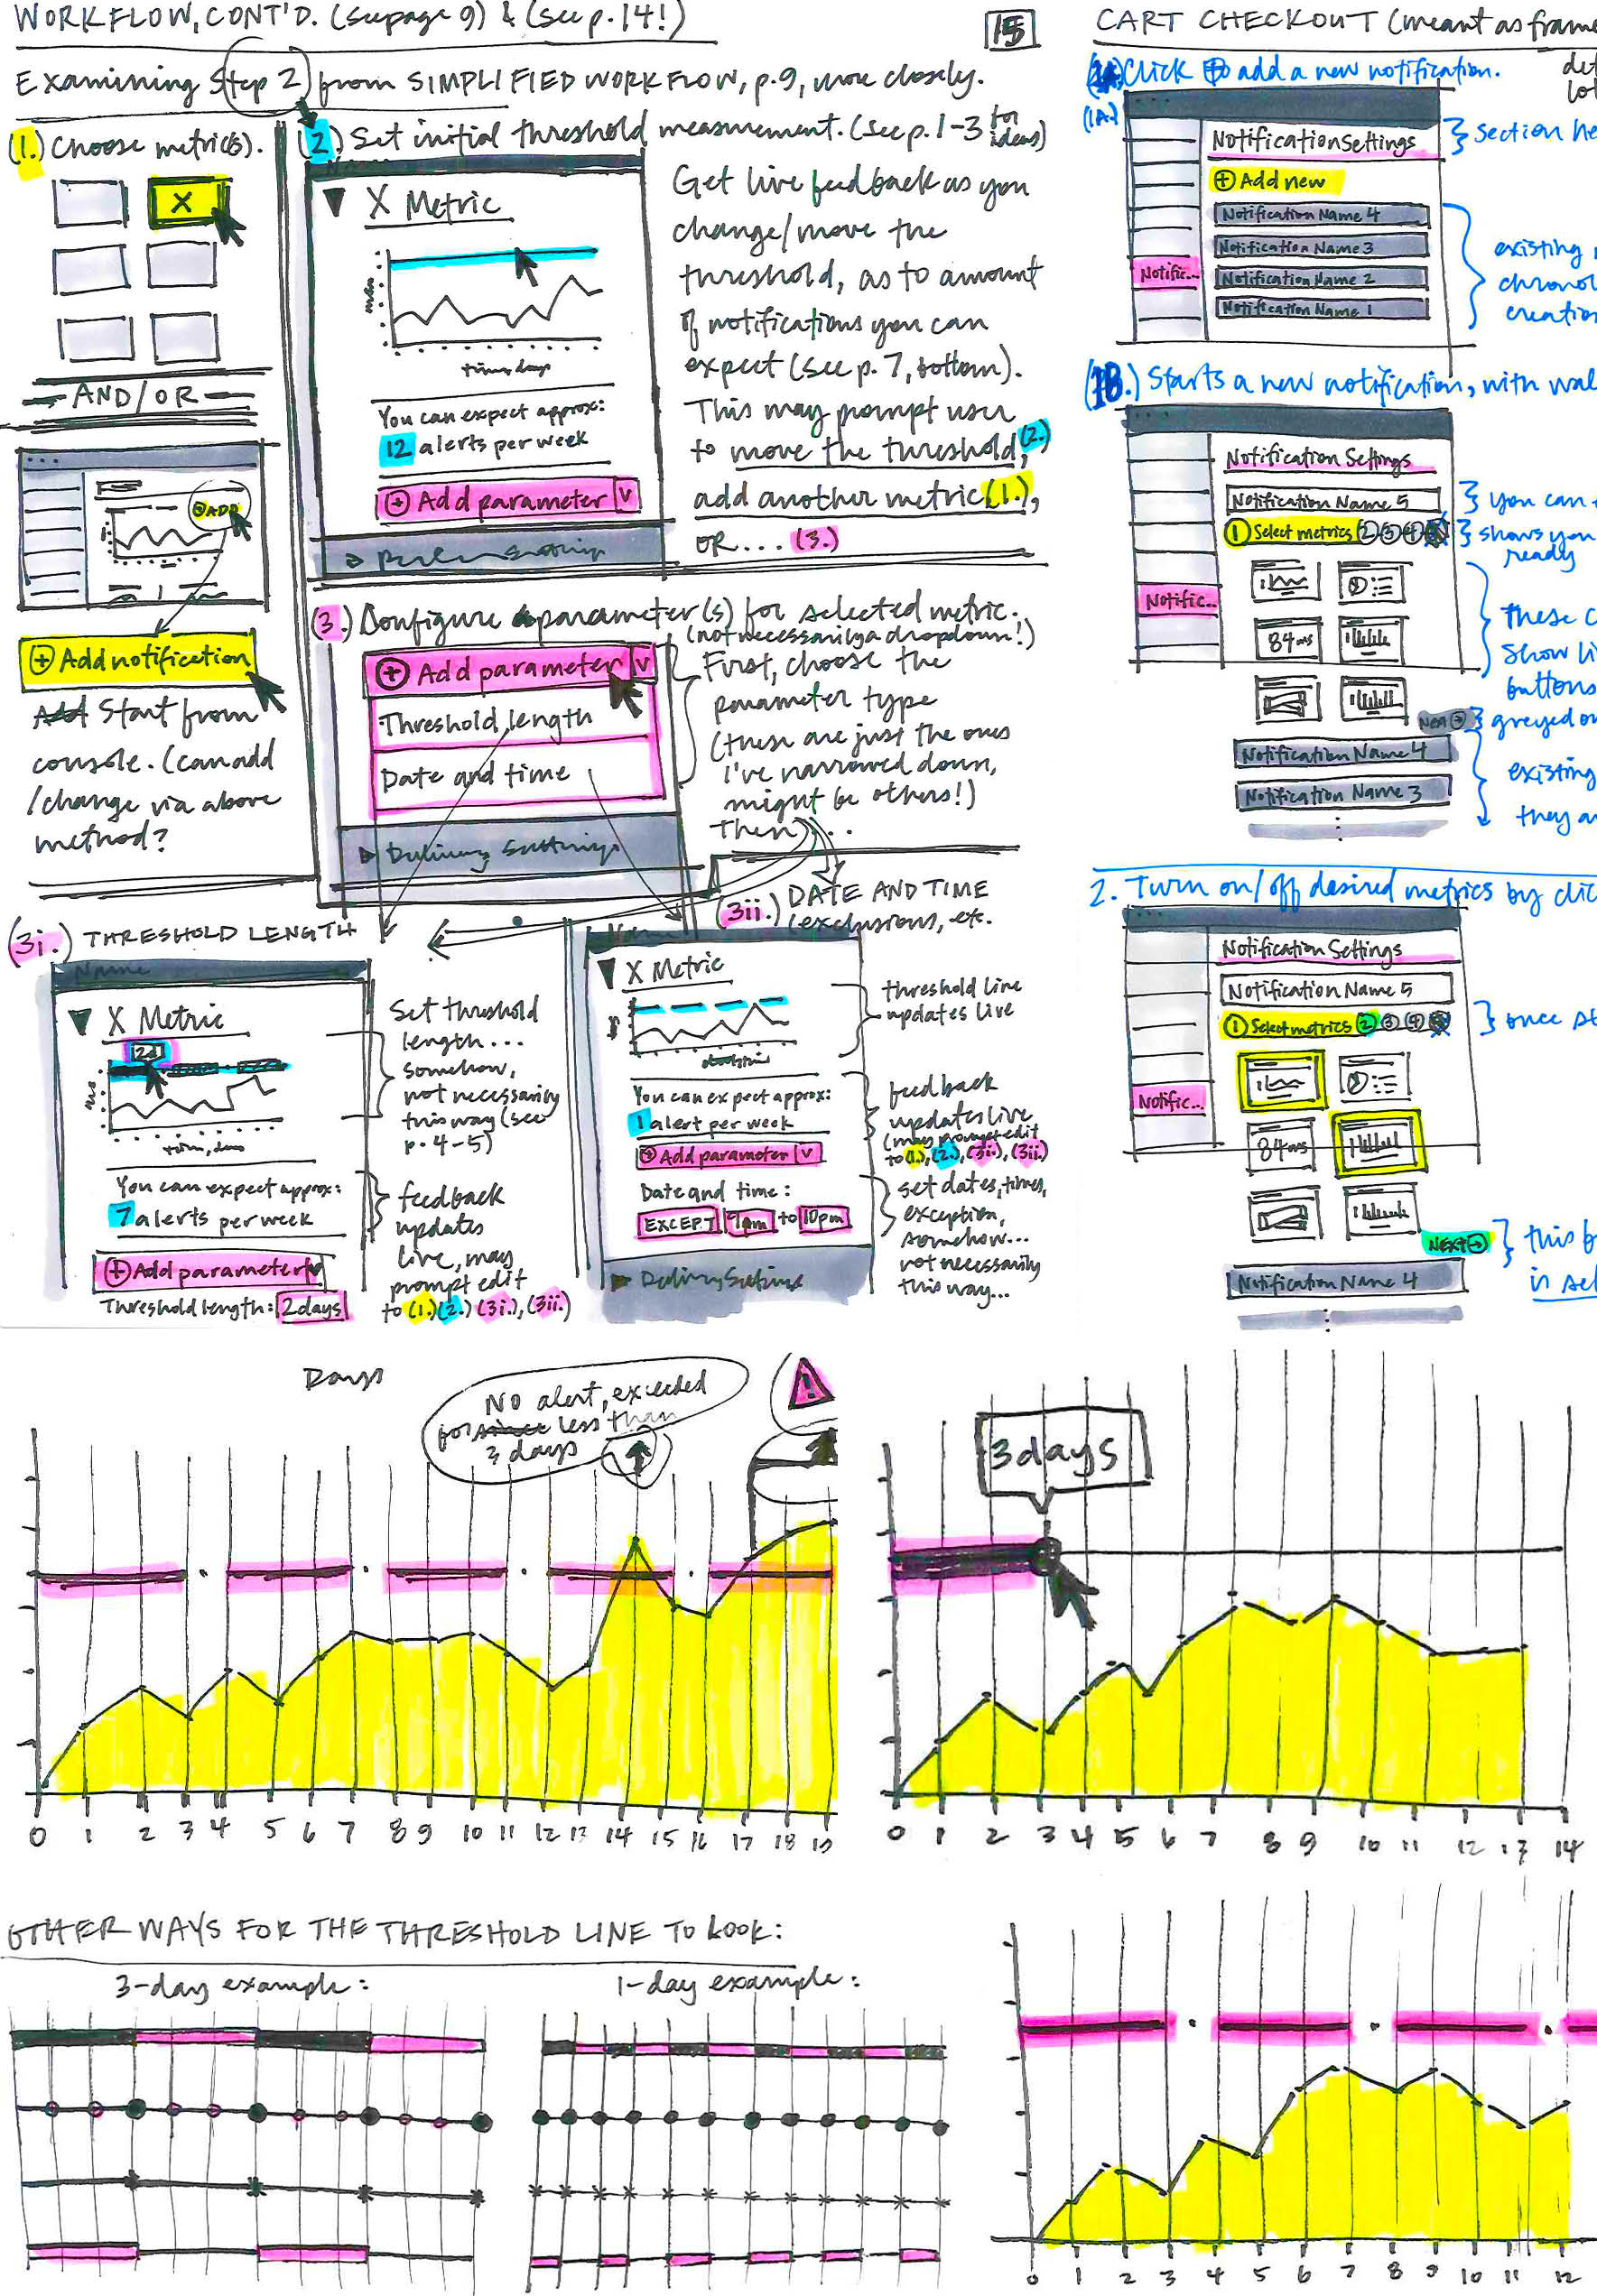 WORKFLOW, CONT'D. (see page 9) & (see p. 14!)
15
Examining Step 2 from SIMPLIFIED WORKFLOW, p.9, more closely.
(1.) Choose metric(s).
X
AND/OR
ADD
+ Add notification
Start from
console. (can add
/change via above
method?
(2.) Set initial threshold measurement. (see p. 1-3 for ideas)
X Metric
time, days
You can expect approx:
12 alerts per week
+ Add parameter v
Get live feedback as you
change/move the
threshold, as to amount
of notifications you can
expect (see p. 7, bottom).
This may prompt user
to move the threshold, (2.)
add another metric (1.),
OR... (3.)
(3.) Configure parameter(s) for selected metric.
(not necessarily a dropdown!)
+ Add parameter v
Threshold length
Date and time
Delivery Settings
First, choose the
parameter type
(these are just the ones
I've narrowed down,
might be others!)
Then...
(3i.) THRESHOLD LENGTH
Name
X Metric
2d
time, days
You can expect approx:
7 alerts per week
+ Add parameter v
Threshold length: 2 days
Set threshold
length...
somehow,
not necessarily
this way (see
p. 4-5)
feedback
updates
live, may
prompt edit
to (1.) (2.) (3i.), (3ii.)
(3ii.) DATE AND TIME
(exclusions, etc.
X Metric
You can expect approx:
1 alert per week
+ Add parameter v
Date and time:
EXCEPT 9am to 10pm
Delivery Settings
threshold line
updates live
feedback
updates live
(may prompt edit
to (1.), (2.), (3i.), (3ii.)
set dates, times,
exception,
somehow...
not necessarily
this way...
CART CHECKOUT (meant as frame
(1A.) Click + to add a new notification.
Notification Settings
+ Add new
Notification Name 4
Notification Name 3
Notification Name 2
Notification Name 1
Notific...
section he
existing
chronol
creation
(1B.) Starts a new notification, with wal
Notification Settings
Notification Name 5
1 Select metrics 2 3 4
Notific...
84ms
NEXT →
Notification Name 4
Notification Name 3
you can
shows you
ready
these c
show li
buttons
greyed ou
existing
they ar
2. Turn on/off desired metrics by clic
Notification Settings
Notification Name 5
1 Select metrics 2 3 4
Notific...
84ms
NEXT →
Notification Name 4
once st
this b
is sel
Days
No alert, exceeded
for less than
3 days
!
0 1 2 3 4 5 6 7 8 9 10 11 12 13 14 15 16 17 18 19
3 days
0 1 2 3 4 5 6 7 8 9 10 11 12 13 14
OTHER WAYS FOR THE THRESHOLD LINE TO LOOK:
3-day example:
1-day example:
0 1 2 3 4 5 6 7 8 9 10 11 12